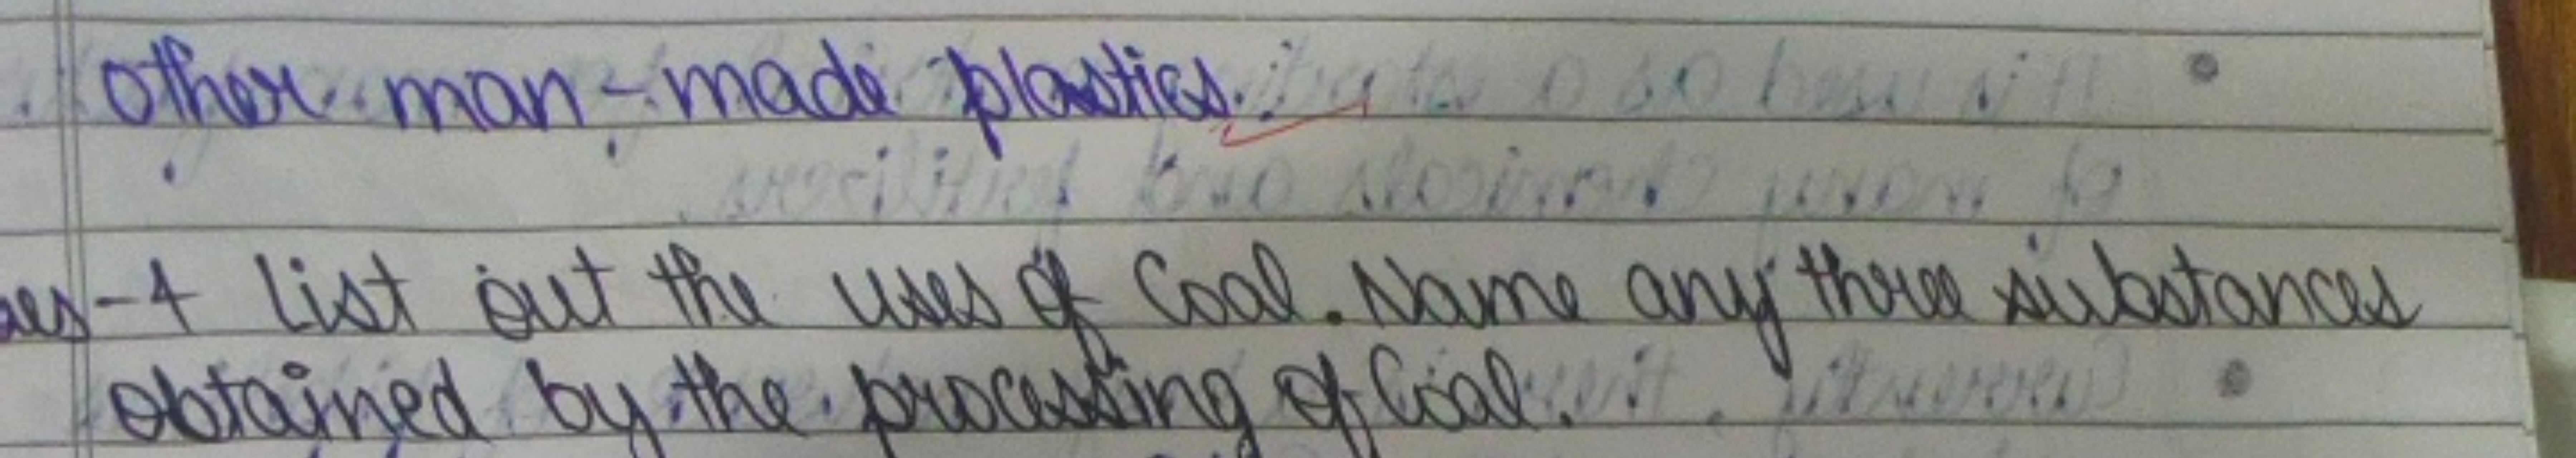 other man-made plastics.
Ques-4 List out the uses of Coal. Name any three substances
obtained by the processing of Coal.